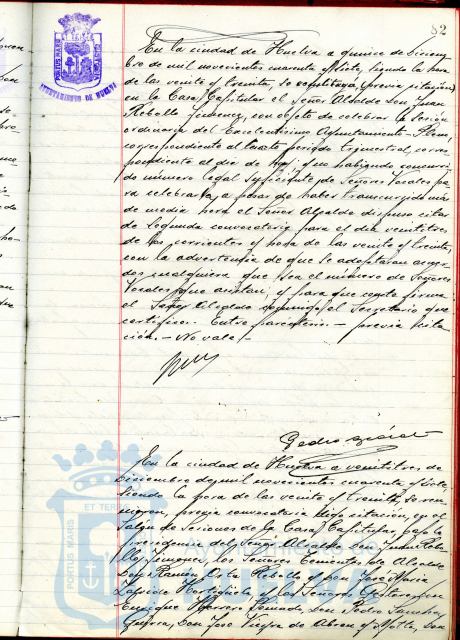 82
PORTUS MARIS
AYUNTAMIENTO DE HUELVA
En la ciudad de Huelva a quince de diciem-
bre de mil novecientos cuarenta y siete, siendo la hora
de las veinte y treinta, se constituyó (previa citación)
en la Casa Capitular el Señor Alcalde Don Juan
Rebollo Jimenez, con objeto de celebrar la sesión
ordinaria del Excelentísimo Ayuntamiento Pleno,
correspondiente al cuarto periodo trimestral, corres-
pondiente al día de hoy, y no habiendo concurri-
do número legal suficiente de Señores Vocales pa-
ra celebrarla, a pesar de haber transcurrido más
de media hora el Señor Alcalde dispuso citar
de segunda convocatoria para el día veintitres
de los corrientes y hora de las veinte y treinta,
con la advertencia de que se adoptaran acuer-
dos cualquiera que sea el número de Señores
Vocales que asistan; y para que conste firma
el Señor Alcalde conmigo el Secretario que
certifico. Entre parentesis.- previa cita-
ción.- No vale.-
Pedro
En la ciudad de Huelva a veintitres de
Diciembre de mil novecientos cuarenta y siete
siendo la hora de las veinte y treinta, se reu-
nieron, previa convocatoria y citación, en el
Salón de Sesiones de la Casa Capitular, bajo la
Presidencia del Señor Alcalde Don Juan Rebo-
llo Jimenez, los Señores Tenientes de Alcalde
Don Ramón Rebollo y Don José María
y los Señores Gestores Don
Enrique Don Pedro Sanchez
Guerra, Don José de Abreu y Don
PORTUS MARIS
ET TER
Ayuntamiento de
HUELVA